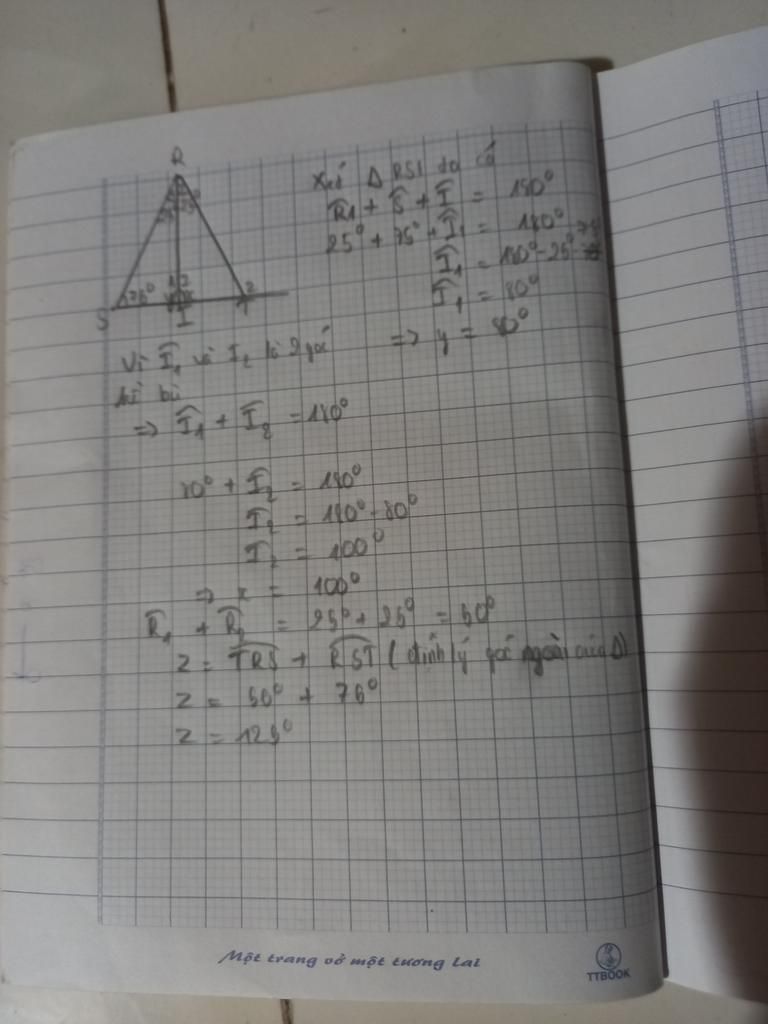 R
25° 25°
75°
1 2
y x
z
S I T
Xét Δ RSI ta có
R̂1 + Ŝ + Î = 180°
25° + 75° + Î1 = 180°
Î1 = 180° - 25° - 75
Î1 = 80°
=> y = 80°
Vì Î1 và I2 là 2 góc
kề bù
=> Î1 + Î2 = 180°
80° + Î2 = 180°
Î2 = 180° - 80°
Î2 = 100°
=> x = 100°
R̂1 + R̂2 = 25° + 25° = 50°
z = TRS + RST (định lý góc ngoài của Δ)
z = 50° + 75°
z = 125°
Một trang vở một tương lai
TTBOOK